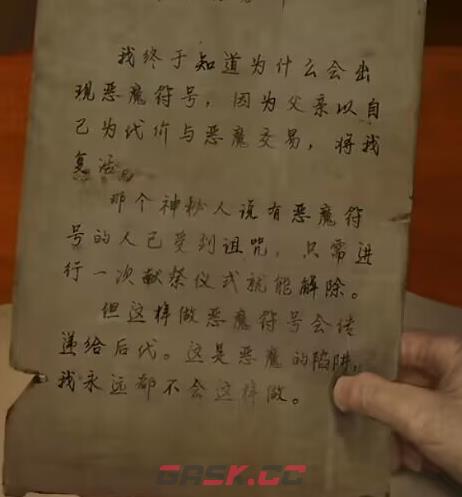 我终于知道为什么会出
现恶魔符号，因为父亲以自
己为代价与恶魔交易，将我
复活。
那个神秘人说有恶魔符
号的人已受到诅咒，只需进
行一次献祭仪式就能解除。
但这样做恶魔符号会传
递给后代。这是恶魔的陷阱，
我永远都不会这样做。
GASK.CC